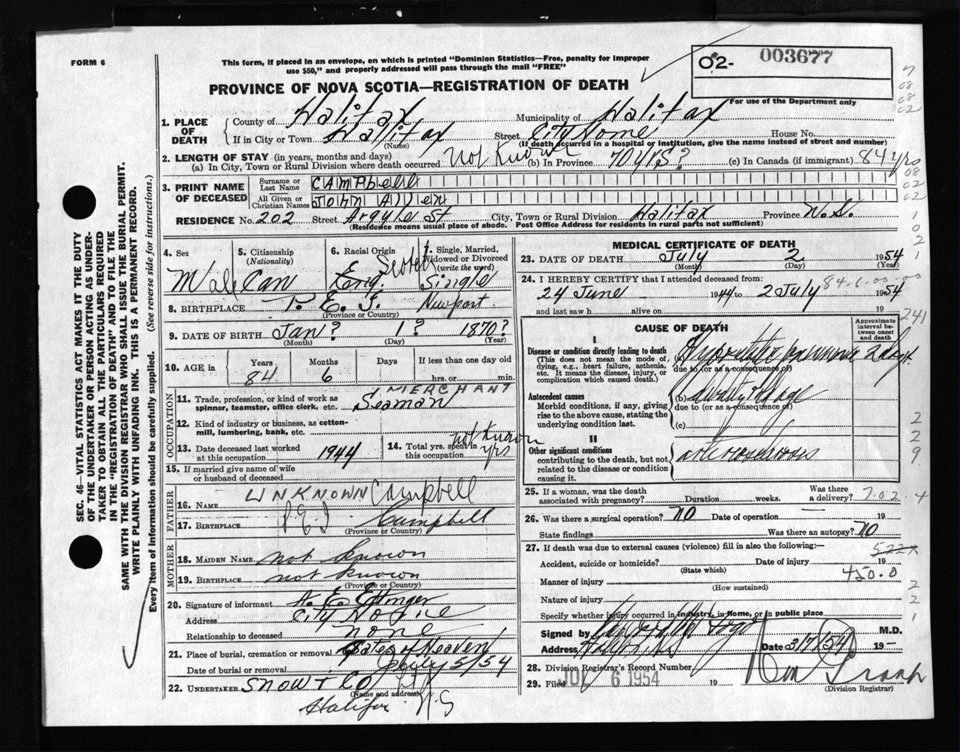 FORM 6
This form, if placed in an envelope, on which is printed "Dominion Statistics—Free, penalty for improper
use $50," and properly addressed will pass through the mail "FREE"
02- 003677
For use of the Department only
PROVINCE OF NOVA SCOTIA—REGISTRATION OF DEATH
1. PLACE OF DEATH
County of Halifax Municipality of Halifax
If in City or Town Halifax Street City Home House No.
(Name) (If death occurred in a hospital or institution, give the name instead of street and number)
2. LENGTH OF STAY (in years, months and days)
(a) In City, Town or Rural Division where death occurred Not Known (b) In Province 70 yrs? (c) In Canada (if immigrant) 84 yrs
3. PRINT NAME OF DECEASED
Surname or Last Name CAMPBELL
All Given or Christian Names JOHN ALLEN
RESIDENCE No. 202 Street Argyle St City, Town or Rural Division Halifax Province N.S.
(Residence means usual place of abode. Post Office Address for residents in rural parts not sufficient)
4. Sex Male
5. Citizenship (Nationality) Can
6. Racial Origin Eng. Scotch
7. Single, Married, Widowed or Divorced (write the word) Single
8. BIRTHPLACE P.E.I. Newport
(Province or Country)
9. DATE OF BIRTH Jan? 1? 1870?
(Month) (Day) (Year)
10. AGE in Years 84 Months 6 Days If less than one day old hrs. or min.
OCCUPATION
11. Trade, profession, or kind of work as spinner, teamster, office clerk, etc. MERCHANT Seaman
12. Kind of industry or business, as cotton-mill, lumbering, bank, etc.
13. Date deceased last worked at this occupation 1944
14. Total yrs. spent in this occupation not known yrs
15. If married give name of wife or husband of deceased
FATHER
16. Name UNKNOWN Campbell
17. Birthplace P.E.I Campbell
(Province or Country)
MOTHER
18. Maiden Name not known
19. Birthplace not known
(Province or Country)
20. Signature of informant
Address City Home
Relationship to deceased none
21. Place of burial, cremation or removal Gates of Heaven
Date of burial or removal July 5/54
22. UNDERTAKER Snow & Co
(Name and address)
Halifax N.S
MEDICAL CERTIFICATE OF DEATH
23. DATE OF DEATH July 2 1954
(Month) (Day) (Year)
24. I HEREBY CERTIFY that I attended deceased from:
24 June 1944 to 2 July 1954
and last saw h alive on 19
CAUSE OF DEATH
Approximate interval between onset and death
I
Disease or condition directly leading to death
(This does not mean the mode of dying, e.g., heart failure, asthenia, etc. It means the disease, injury, or complication which caused death.)
(a) Hypostatic pneumonia 2 days
due to (or as a consequence of)
Antecedent causes
Morbid conditions, if any, giving rise to the above cause, stating the underlying condition last.
(b) old age
due to (or as a consequence of)
(c)
II
Other significant conditions
contributing to the death, but not related to the disease or condition causing it.
arteriosclerosis
25. If a woman, was the death associated with pregnancy? Duration weeks. Was there a delivery?
26. Was there a surgical operation? no Date of operation 19
State findings Was there an autopsy? no
27. If death was due to external causes (violence) fill in also the following:—
Accident, suicide or homicide? Date of injury 19
(State which)
Manner of injury 450.0
(How sustained)
Nature of injury
Specify whether injury occurred in industry, in home, or in public place
Signed by M.D.
Address Date 2/7/54 19
28. Division Registrar's Record Number
29. Filed JUL 6 1954 19
(Division Registrar)
SEC. 46—VITAL STATISTICS ACT MAKES IT THE DUTY
OF THE UNDERTAKER OR PERSON ACTING AS UNDER-
TAKER TO OBTAIN ALL THE PARTICULARS REQUIRED
IN THE "REGISTRATION OF DEATH" AND TO FILE THE
SAME WITH THE DIVISION REGISTRAR WHO SHALL ISSUE THE BURIAL PERMIT.
WRITE PLAINLY WITH UNFADING INK. THIS IS A PERMANENT RECORD.
Every item of information should be carefully supplied. (See reverse side for instructions.)